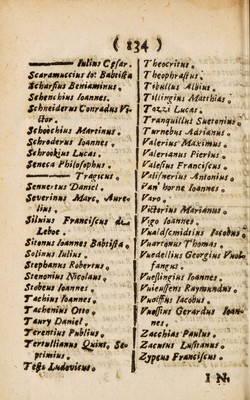 ( 834 )
Iulius Cęsar.
Scaramuccius Io: Baptista
Scharfius Beniaminus.
Schenchius Ioannes.
Schneiderus Conradus Vi-
ctor.
Schoochius Martinus.
Schroderus Ioannes.
Schroobjus Lucas.
Seneca Philosophus.
Tragicus.
Sennertus Daniel.
Severinus Marc. Aure-
lius.
Silvius Franciscus de
Leboe.
Sitonus Ioannes Babtista.
Solinus Iulius.
Stephanus Robertus.
Stenonius Nicolaus.
Stobeus Ioannes.
Tachius Ioannes.
Tachenius Otto.
Taury Daniel.
Terentius Publius.
Tertullianus Quint. Se-
primius.
Testi Ludovicus.
Theocritus.
Theophrastus.
Tibullus Albius.
Tillingius Matthias.
Tozzi Lucas.
Tranquillus Suetonius.
Turnebus Adrianus.
Valerius Maximus.
Valerianus Pierius.
Valesius Franciscus.
Valisnerius Antonius.
Van horne Ioannes.
Varo.
Victorius Marianus.
Vigo Ioannes
Vualdscmidsius Iocobus
Vuartonus Thomas.
Vuedellius Georgius Vuol-
fangus.
Vueslingius Ioannes.
Vuieussens Raymundus.
Vuolffius Iacobus.
Vuossius Gerardus Ioan-
nes.
Zacchias Paulus.
Zacutus Lusitanus.
Zypeus Franciscus.
I N-